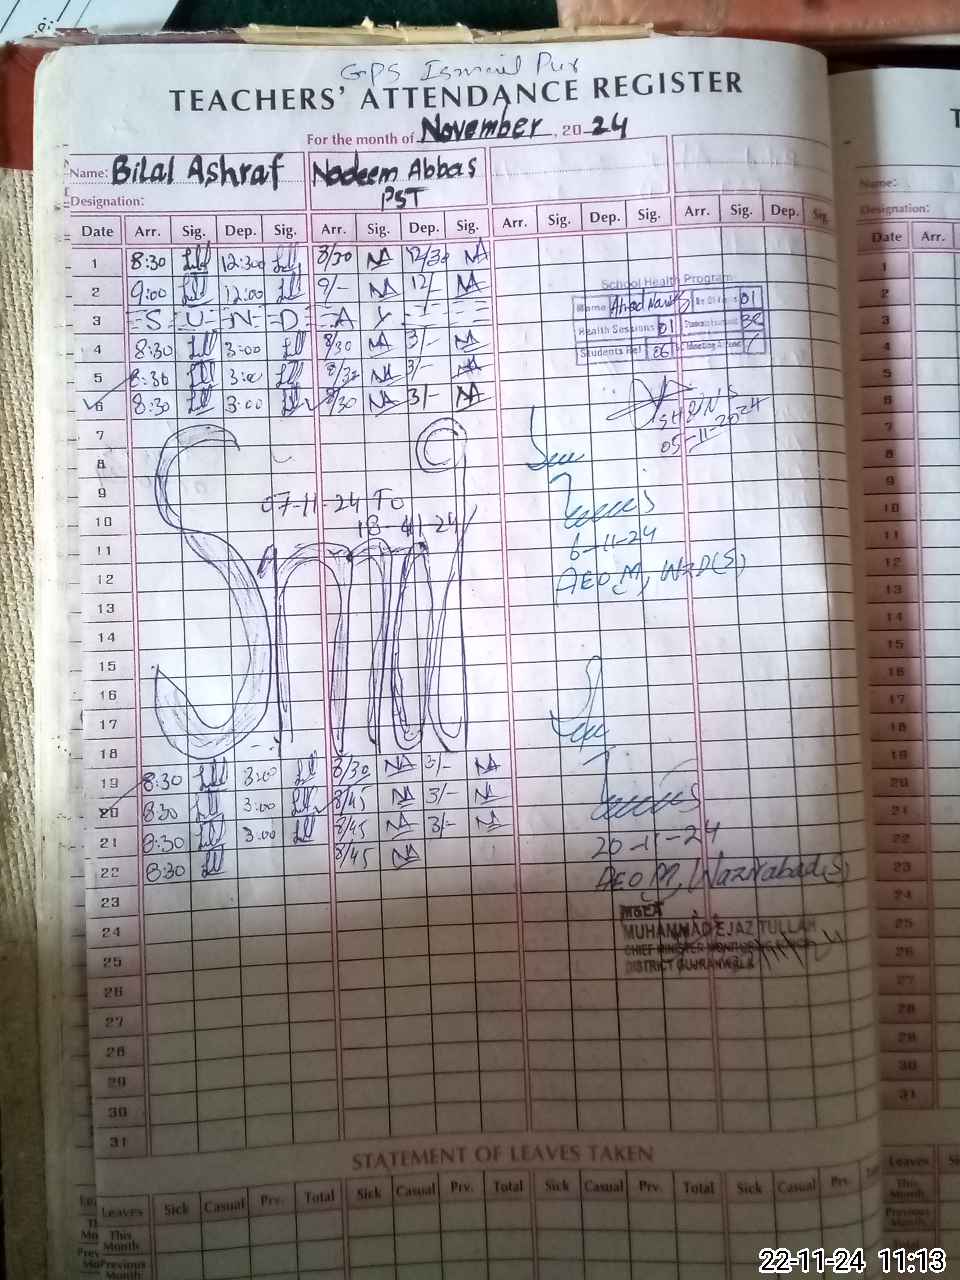 GPS Ismail Pur
TEACHERS' ATTENDANCE REGISTER
For the month of November, 2024
Name: Bilal Ashraf Nadeem Abbas
Designation: PST
Date Arr. Sig. Dep. Sig. Arr. Sig. Dep. Sig. Arr. Sig. Dep. Sig. Arr. Sig. Dep. Sig.
1 8:30 12:30 8/30 NA 12/30 NA
2 9:00 12:00 9/- NA 12/- NA
3 S U N D A Y
4 8:30 3:00 8/30 NA 3/- NA
5 8:30 3:00 8/30 NA 3/- NA
6 8:30 3:00 8/30 NA 3/- NA
School Health Program
Name
Health Sessions 01
Students Ref 26
SH&NS
05-11-2024
7
8
9
07-11-24 To
10
18-11-24
6-11-24
11
12
AEO M, WZD(S)
13
14
15
16
17
18
Smog
19 8:30 3:00 8/30 NA 3/- NA
20 8:30 3:00 8/45 NA 3/- NA
21 8:30 3:00 8/45 NA 3/- NA
22 8:30 8/45 NA
20-11-24
AEO M, Wazirabad(S)
23
24
25
M&EA
MUHAMMAD EJAZ TULLAH
CHIEF MINISTER MONITORING FORCE
DISTRICT GUJRANWALA
26
27
28
29
30
31
STATEMENT OF LEAVES TAKEN
Leaves Sick Casual Prv. Total Sick Casual Prv. Total Sick Casual Prv. Total Sick Casual Prv.
This Month
Previous Month
Name:
Designation:
Date Arr.
1
2
3
4
5
6
7
8
9
10
11
12
13
14
15
16
17
18
19
20
21
22
23
24
25
26
27
28
29
30
31
Leaves
This Month
Previous Month
Total
22-11-24 11:13